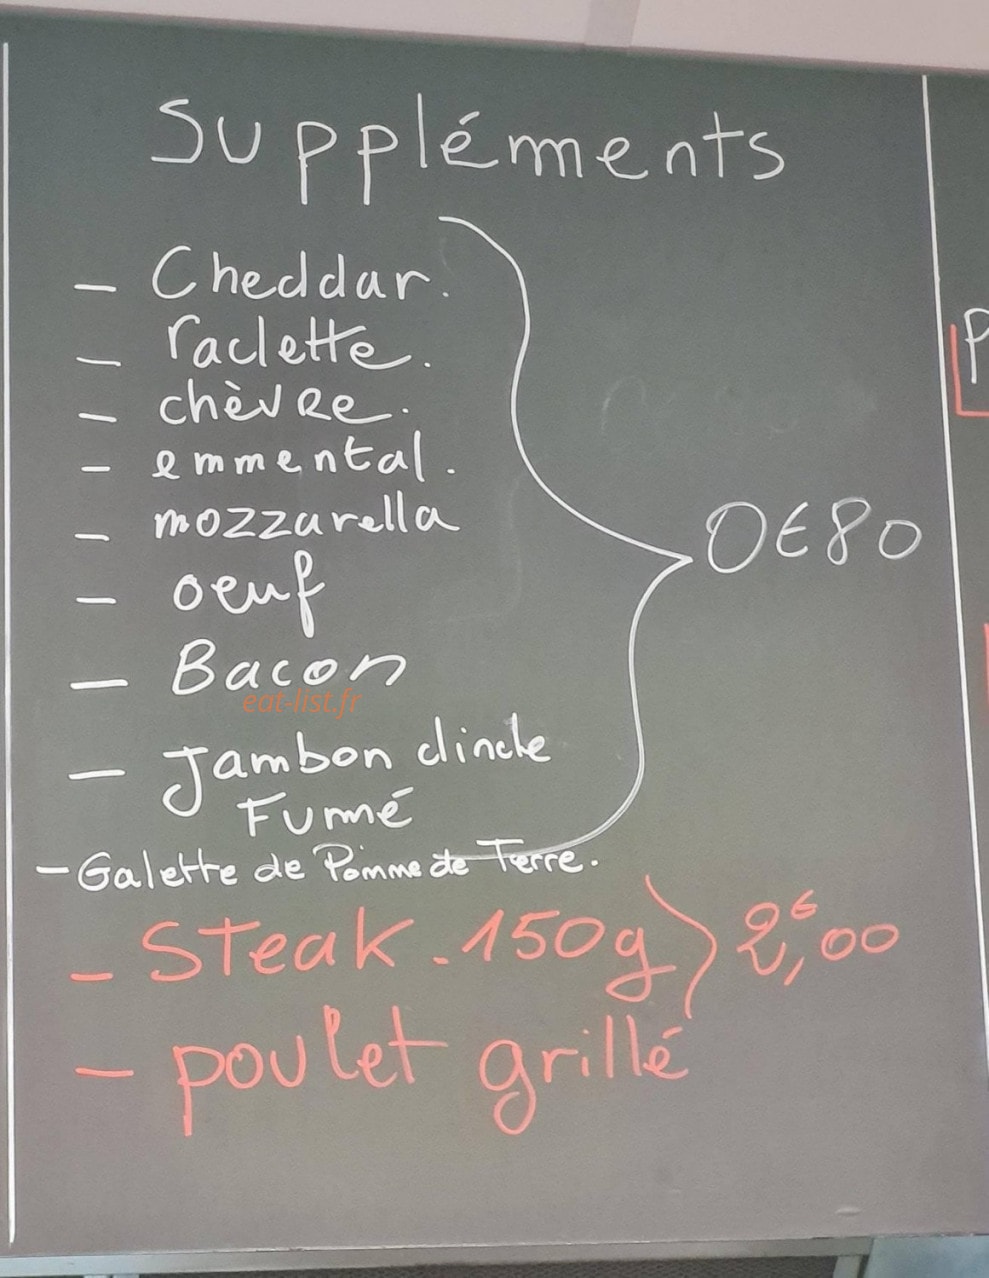 Suppléments
- Cheddar.
- raclette.
- chèvre.
- emmental.
- mozzarella
- oeuf
- Bacon
- Jambon dinde
Fumé
- Galette de Pomme de Terre.
0€80
- Steak - 150g
- poulet grillé
2,€00
eat-list.fr
P